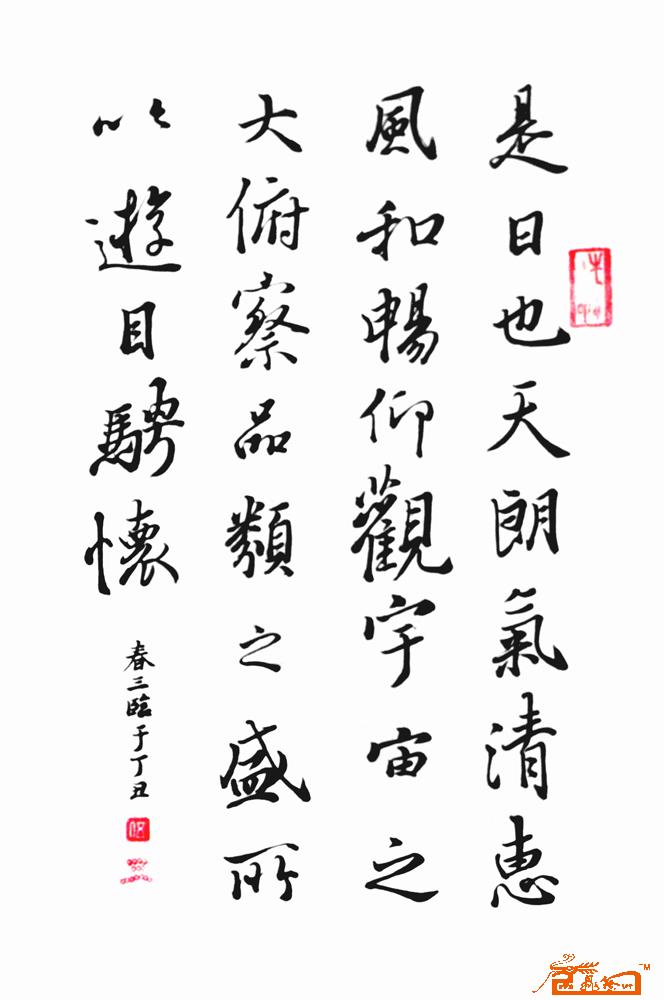 是日也天朗氣清恵
風和暢仰觀宇宙之
大俯察品類之盛所
以遊目騁懷
春三臨于丁丑